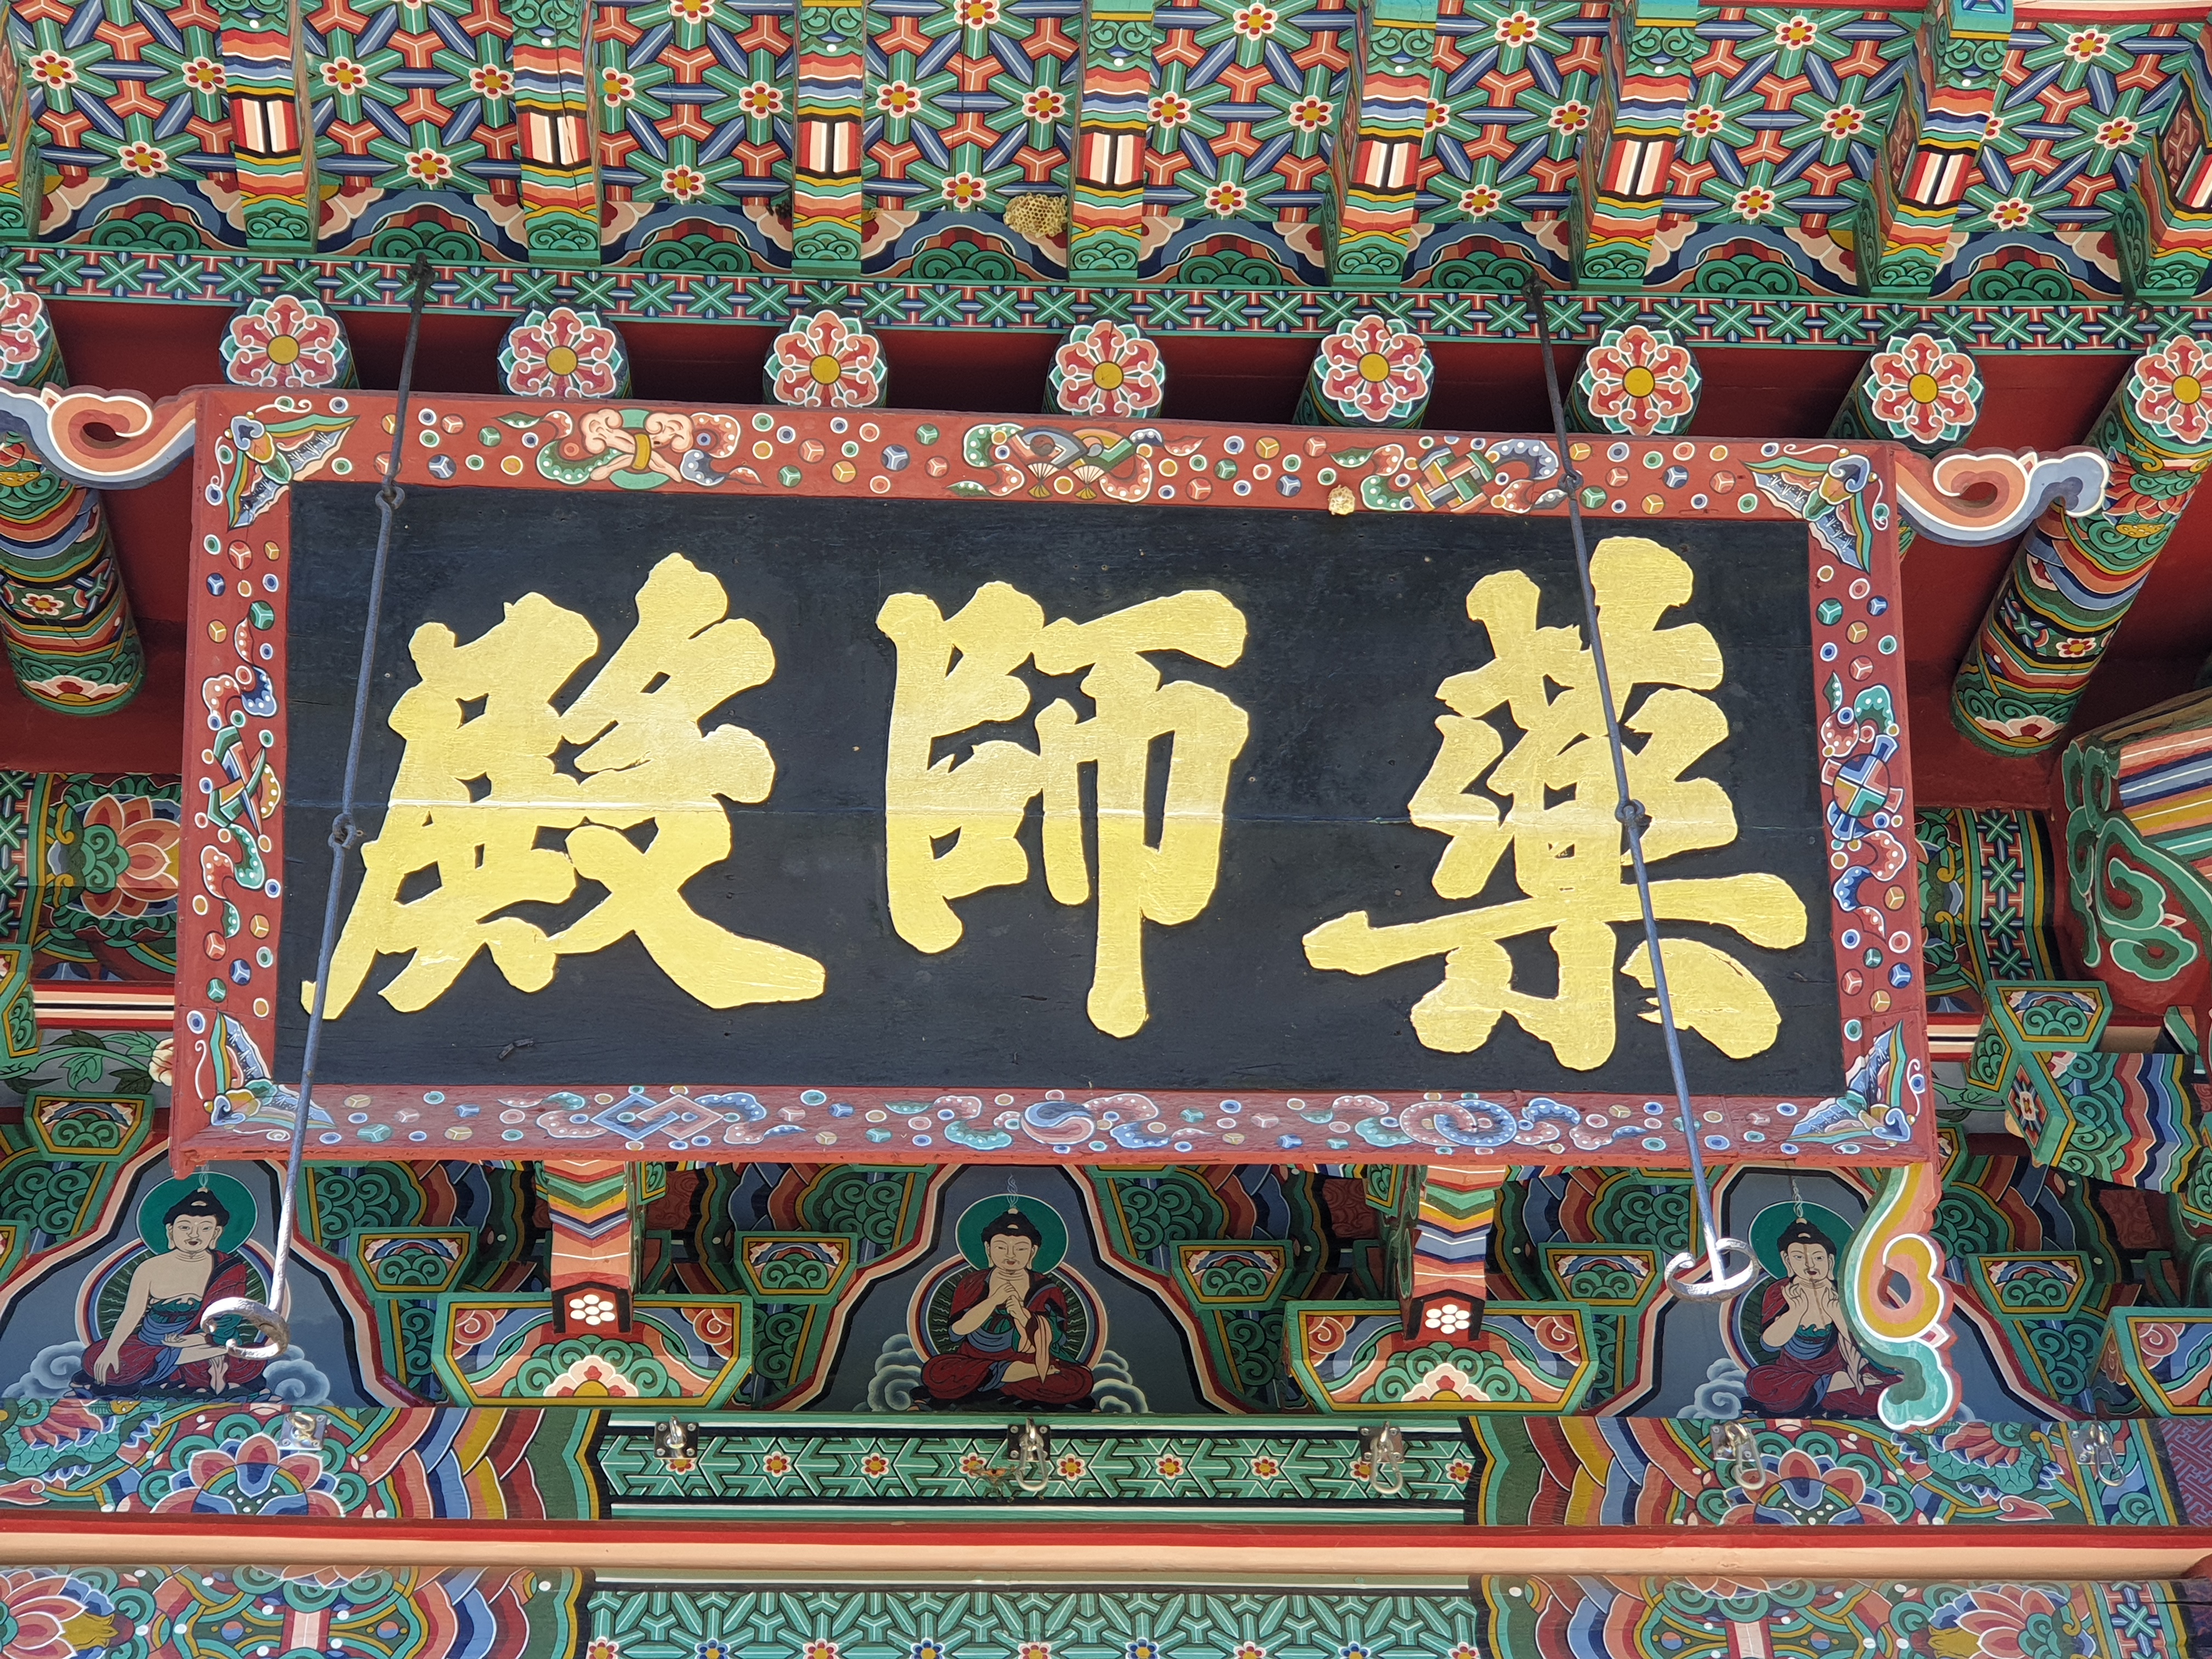 藥師殿